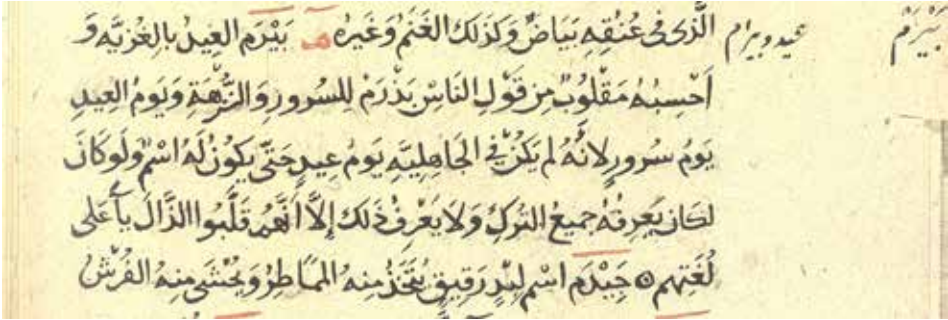 بَيْرَمْ
عيد و بيرام
الَّذى فى عُنُقِهِ بَيَاضٌ وَكَذلكَ الغَنَمُ وَغَيرُه بَيْرَم العِيدُ بالغُزيَّه وَ
أَحْسِبُهُ مَقْلُوبٌ مِن قَولِ النَاسِ بَذْرَمْ للسُرورِ وَالنُّزْهَةِ وَيَومُ العِيدِ
يَومُ سُرورٍ لانَّهُ لم يَكُنْ فِى الجَاهِليَّهِ يَومُ عيدٍ حَتَّى يَكونُ لَهُ اسْمٌ وَلَو كانَ
لكان يَعرِفُهُ جميعُ التركِ وَلا يَعْرِفُ ذَلك إلّا أنَّهُم قَلَّبُوا الذَّالَ يأً عَلى
لُغَتِهم جَيْدَم اسْم لِلِبْدٍ رَقِيقٍ يُتَّخَذُ مِنهُ المَمَاطِرُ وَيُحْشَى مِنهُ الفُرُشُ